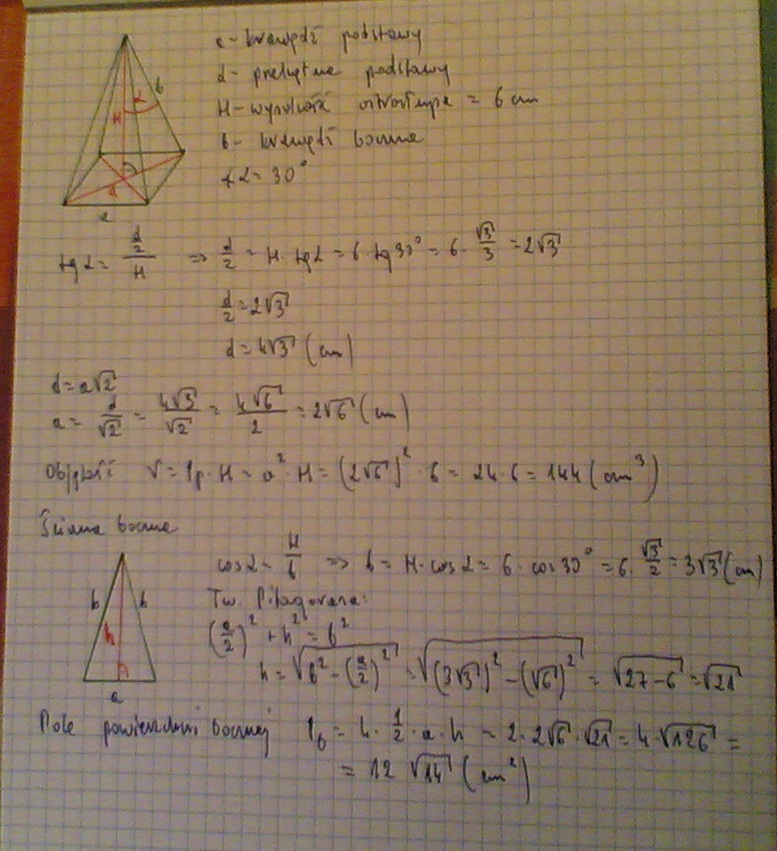 a - krawędź podstawy
d - przekątna podstawy
H - wysokość ostrosłupa = 6 cm
b - krawędź boczna
∢α = 30°
H
α
b
d
a
tg α = (d/2)/H => d/2 = H · tg α = 6 · tg 30° = 6 · √3/3 = 2√3
d/2 = 2√3
d = 4√3 (cm)
d = a√2
a = d/√2 = 4√3/√2 = 4√6/2 = 2√6 (cm)
Objętość V = Pp · H = a² · H = (2√6)² · 6 = 24 · 6 = 144 (cm³)
Ściana boczna
b
h
b
a
cos α = H/b => b = H · cos α = 6 · cos 30° = 6 · √3/2 = 3√3 (cm)
Tw. Pitagorasa:
(a/2)² + h² = b²
h = √(b² - (a/2)²) = √((3√3)² - (√6)²) = √(27 - 6) = √21
Pole powierzchni bocznej Pb = 4 · 1/2 · a · h = 2 · 2√6 · √21 = 4 · √126 =
= 12 √14 (cm²)